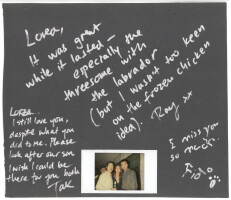 Lorea,
It was great
while it lasted –
especially the
threesome with
the labrador
(but I wasn't too keen
on the frozen chicken
idea). Roy xx
LOREA
I still love you,
despite what you
did to me. Please
look after our son
I wish I could be
there for you both
I miss you
so much.